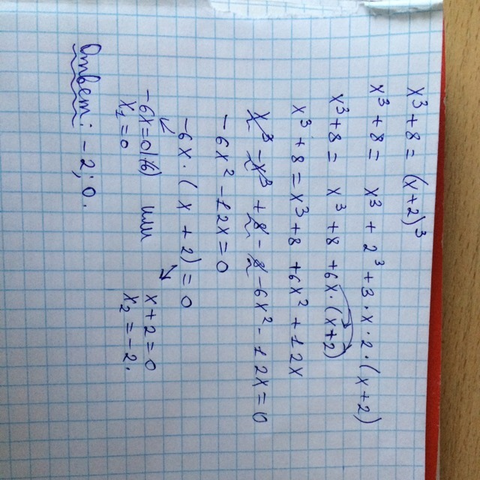 x³ + 8 = (x+2)³
x³ + 8 = x³ + 2³ + 3 · x · 2 · (x+2)
x³ + 8 = x³ + 8 + 6x · (x+2)
x³ + 8 = x³ + 8 + 6x² + 12x
x³ - x³ + 8 - 8 - 6x² - 12x = 0
-6x² - 12x = 0
-6x · (x + 2) = 0
-6x = 0 |(/6) или x + 2 = 0
x₁ = 0 x₂ = -2.
Ответ: -2; 0.